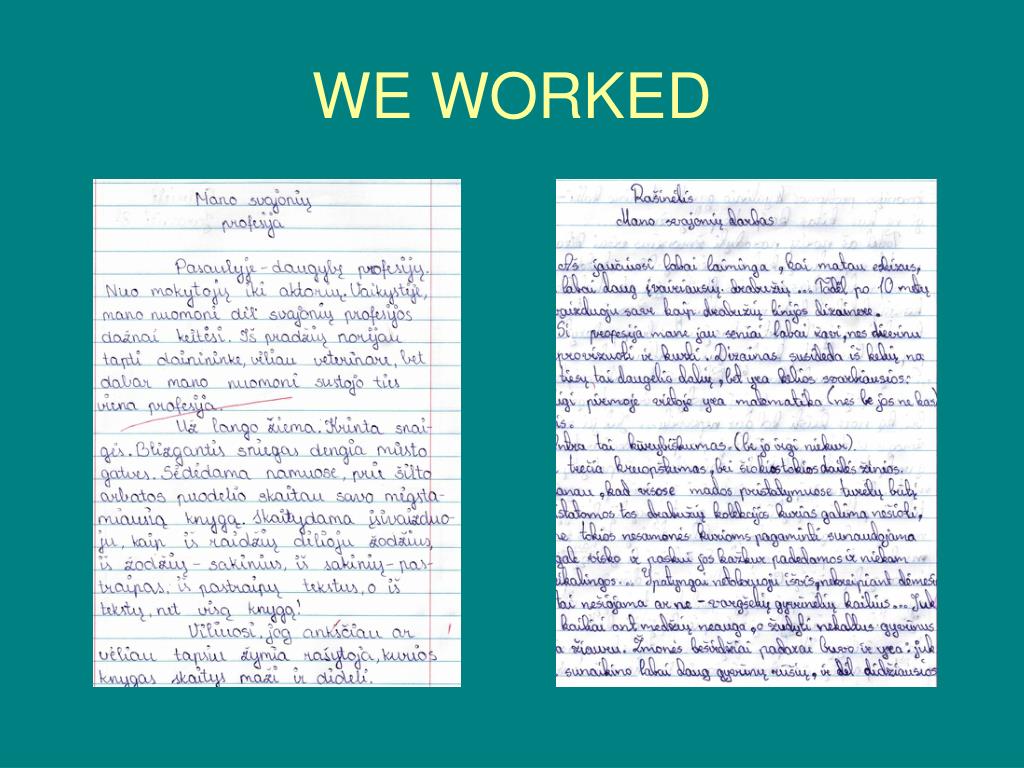 WE WORKED
Mano svajonių
profesija
Pasaulyje - daugybę profesijų.
Nuo mokytojų iki aktorių. Vaikystėje,
mano nuomonė dėl svajonių profesijos
dažnai keitėsi. Iš pradžių norėjau
tapti dainininke, vėliau veterinare, bet
dabar mano nuomonė sustojo ties
viena profesija.
Už lango žiema. Krinta snai-
gės. Blizgantis sniegas dengia miesto
gatves. Sėdėdama namuose, prie šilto
arbatos puodelio skaitau savo mėgsta-
miausią knygą. Skaitydama įsivaizduo-
ju, kaip iš raidžių dėlioju žodžius,
iš žodžių - sakinius, iš sakinių - pas-
traipas, iš pastraipų tekstus, o iš
tekstų, net visą knygą!
Viliuosi, jog anksčiau ar
vėliau tapsiu žymia rašytoja, kurios
knygas skaitys maži ir dideli.
Rašinėlis
Mano svajonių darbas
Aš jaučiuosi labai laiminga, kai matau eskizus,
labai daug įvairiausių drabužių ... Todėl po 10 metų
vaizduoju save kaip drabužių linijos dizainere.
Ši profesija mane jau seniai labai žavi, nes
provizuoti ir kurti. Dizainas susideda iš kelių, na
tiesų tai daugelio dalių, bet yra kelios svarbiausios:
igi pirmoje vietoje yra matematika (nes be jos ne kas
is.
ntra tai kūrybiškumas. (be jo irgi niekur).
trečia kruopštumas, bei šiokios tokios dailės žinios.
anau, kad visose mados pristatymuose turėtų būti
istatomos tos drabužių kolekcijos kurias galima nešioti,
ne tokios nesamonės kurioms pagaminti sunaudojama
gale visko ir paskui jos kažkur padedamos ir niekam
eikalingos... Ypatingai netoleruoju išvis, nekreipiant dėmesi
tai nešiojama ar ne - vargšelių gyvūnėlių kailius... Juk
kailiai ant medžių neauga, o žudyti nekaltus gyvūnus
a žiauru. Žmonės beširdžiai padarai buvo ir yra: juk
sunaikino labai daug gyvūnų rūšių, ir dėl didžiausios